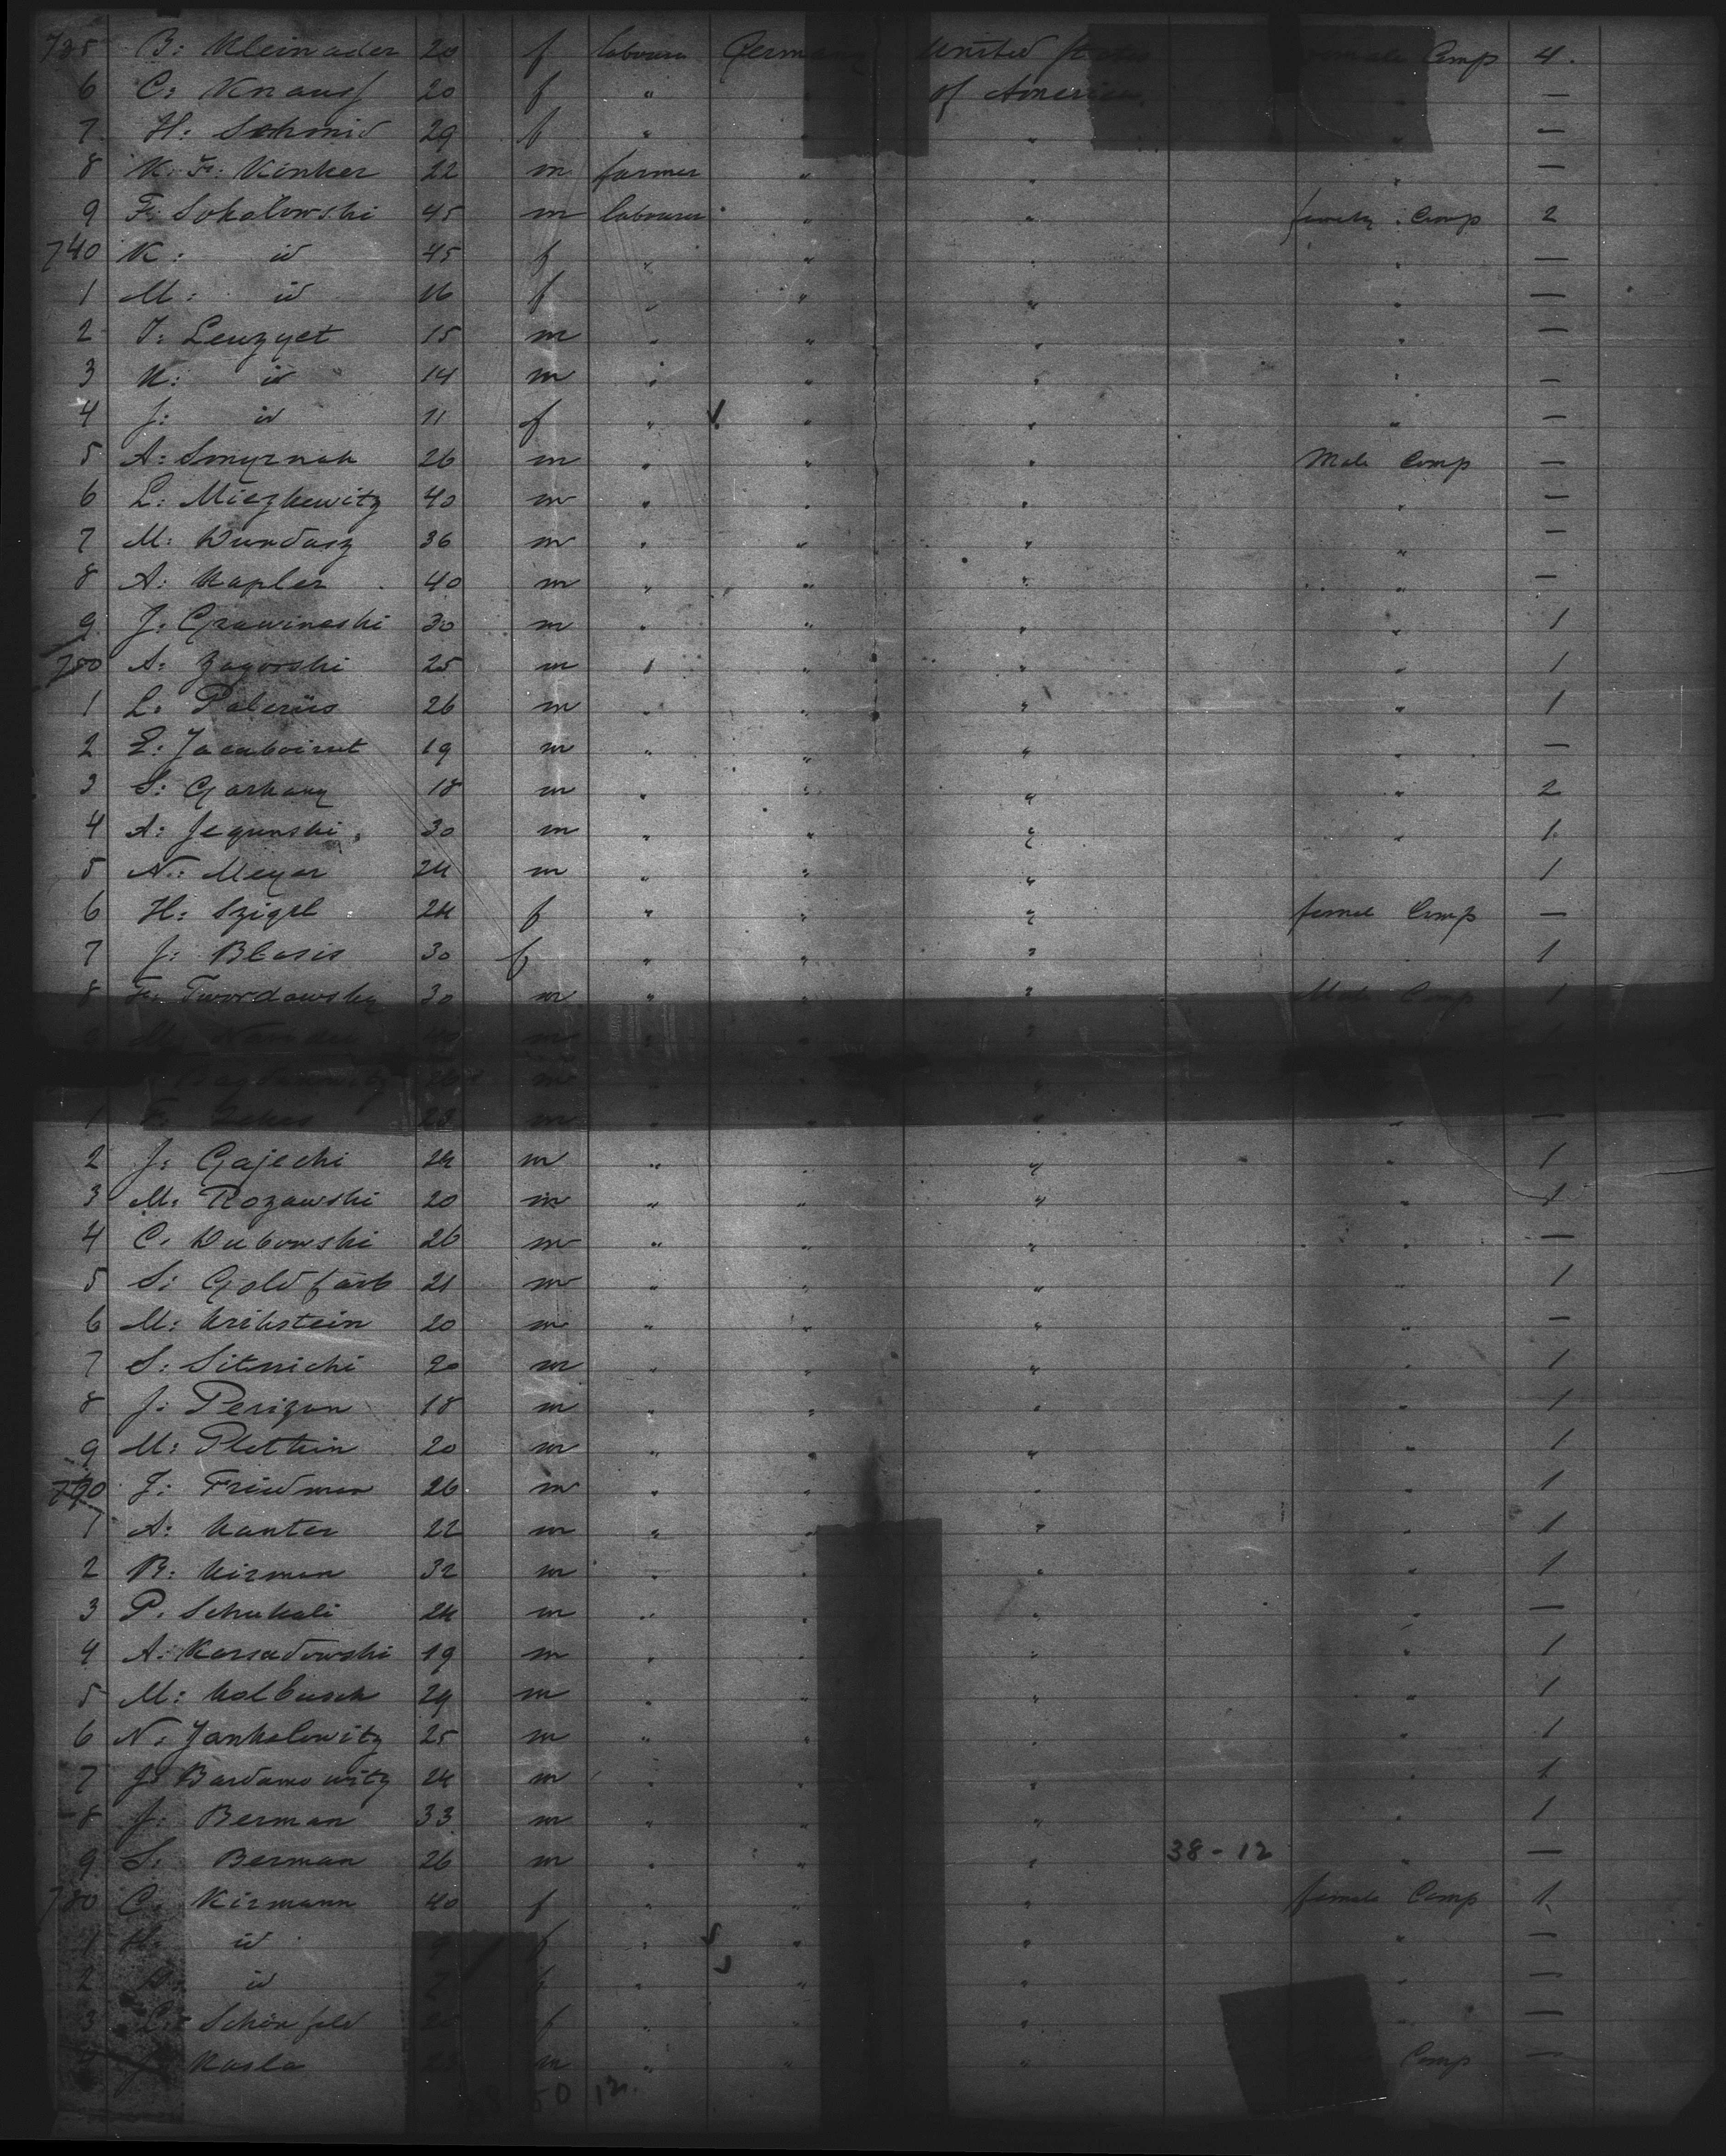 735 B: Kleinader 20 f labourer Germany United States female Comp 4.
6 C: Knauf 20 f " of America " —
7 H: Schmid 29 f " " " " —
8 K. F: Kinker 22 m farmer " " " —
9 F: Sokolowski 45 m labourer " " family Comp 2
740 K: id 45 f " " " " —
1 M: id 16 f " " " " —
2 J: Leuzyet 15 m " " " " —
3 K: id 14 m " " " " —
4 J: id 11 f " " " " —
5 A: Smyrnak 26 m " " " Male Comp —
6 L: Miezkewitz 40 m " " " " —
7 M: Dundasz 36 m " " " " —
8 A: Kapler 40 m " " " " —
9 J: Grawinoski 30 m " " " " 1
750 A: Zagorski 25 m " " " " 1
1 L: 26 m " " " " 1
2 19 m " " " " —
3 S: Garkany 18 m " " " " 2
4 A: Jegunski 30 m " " " " 1
5 N: Meyer 24 m " " " " 1
6 H: Szigel 24 f " " " female Comp —
7 J: Blasis 30 f " " " " 1
8 Fr: Twordowsky 30 m " " " Male Comp 1
m " "
m " " —
1 F: 23 m " " " " —
2 J: Gajechi 24 m " " " " 1
3 M: Rozawski 20 m " " " " 1
4 C: Dubowski 26 m " " " " —
5 S: Goldfarb 21 m " " " " 1
6 M: Krikstein 20 m " " " " —
7 S: Sitnichi 20 m " " " " 1
8 J: Perizon 18 m " " " " 1
9 M: Plotkin 20 m " " " " 1
770 J: Friedman 26 m " " " " 1
1 A: Kanter 22 m " " " " 1
2 B: Kirman 32 m " " " " 1
3 P: Schukali 24 m " " " " —
4 A: Karsadowski 19 m " " " " 1
5 M: Kolbusch 29 m " " " " 1
6 N: Jankelowitz 25 m " " " " 1
7 J: Bardamowitz 24 m " " " " 1
8 J: Berman 33 m " " " " 1
9 S: Berman 26 m " " " 38-12 " —
780 C: Kirmann 40 f " " " female Comp 1
1 H: id f " " " " —
2 id " " " " —
3 Schönfeld f " " " " —
4 Kasla m " " " Comp —
50 12